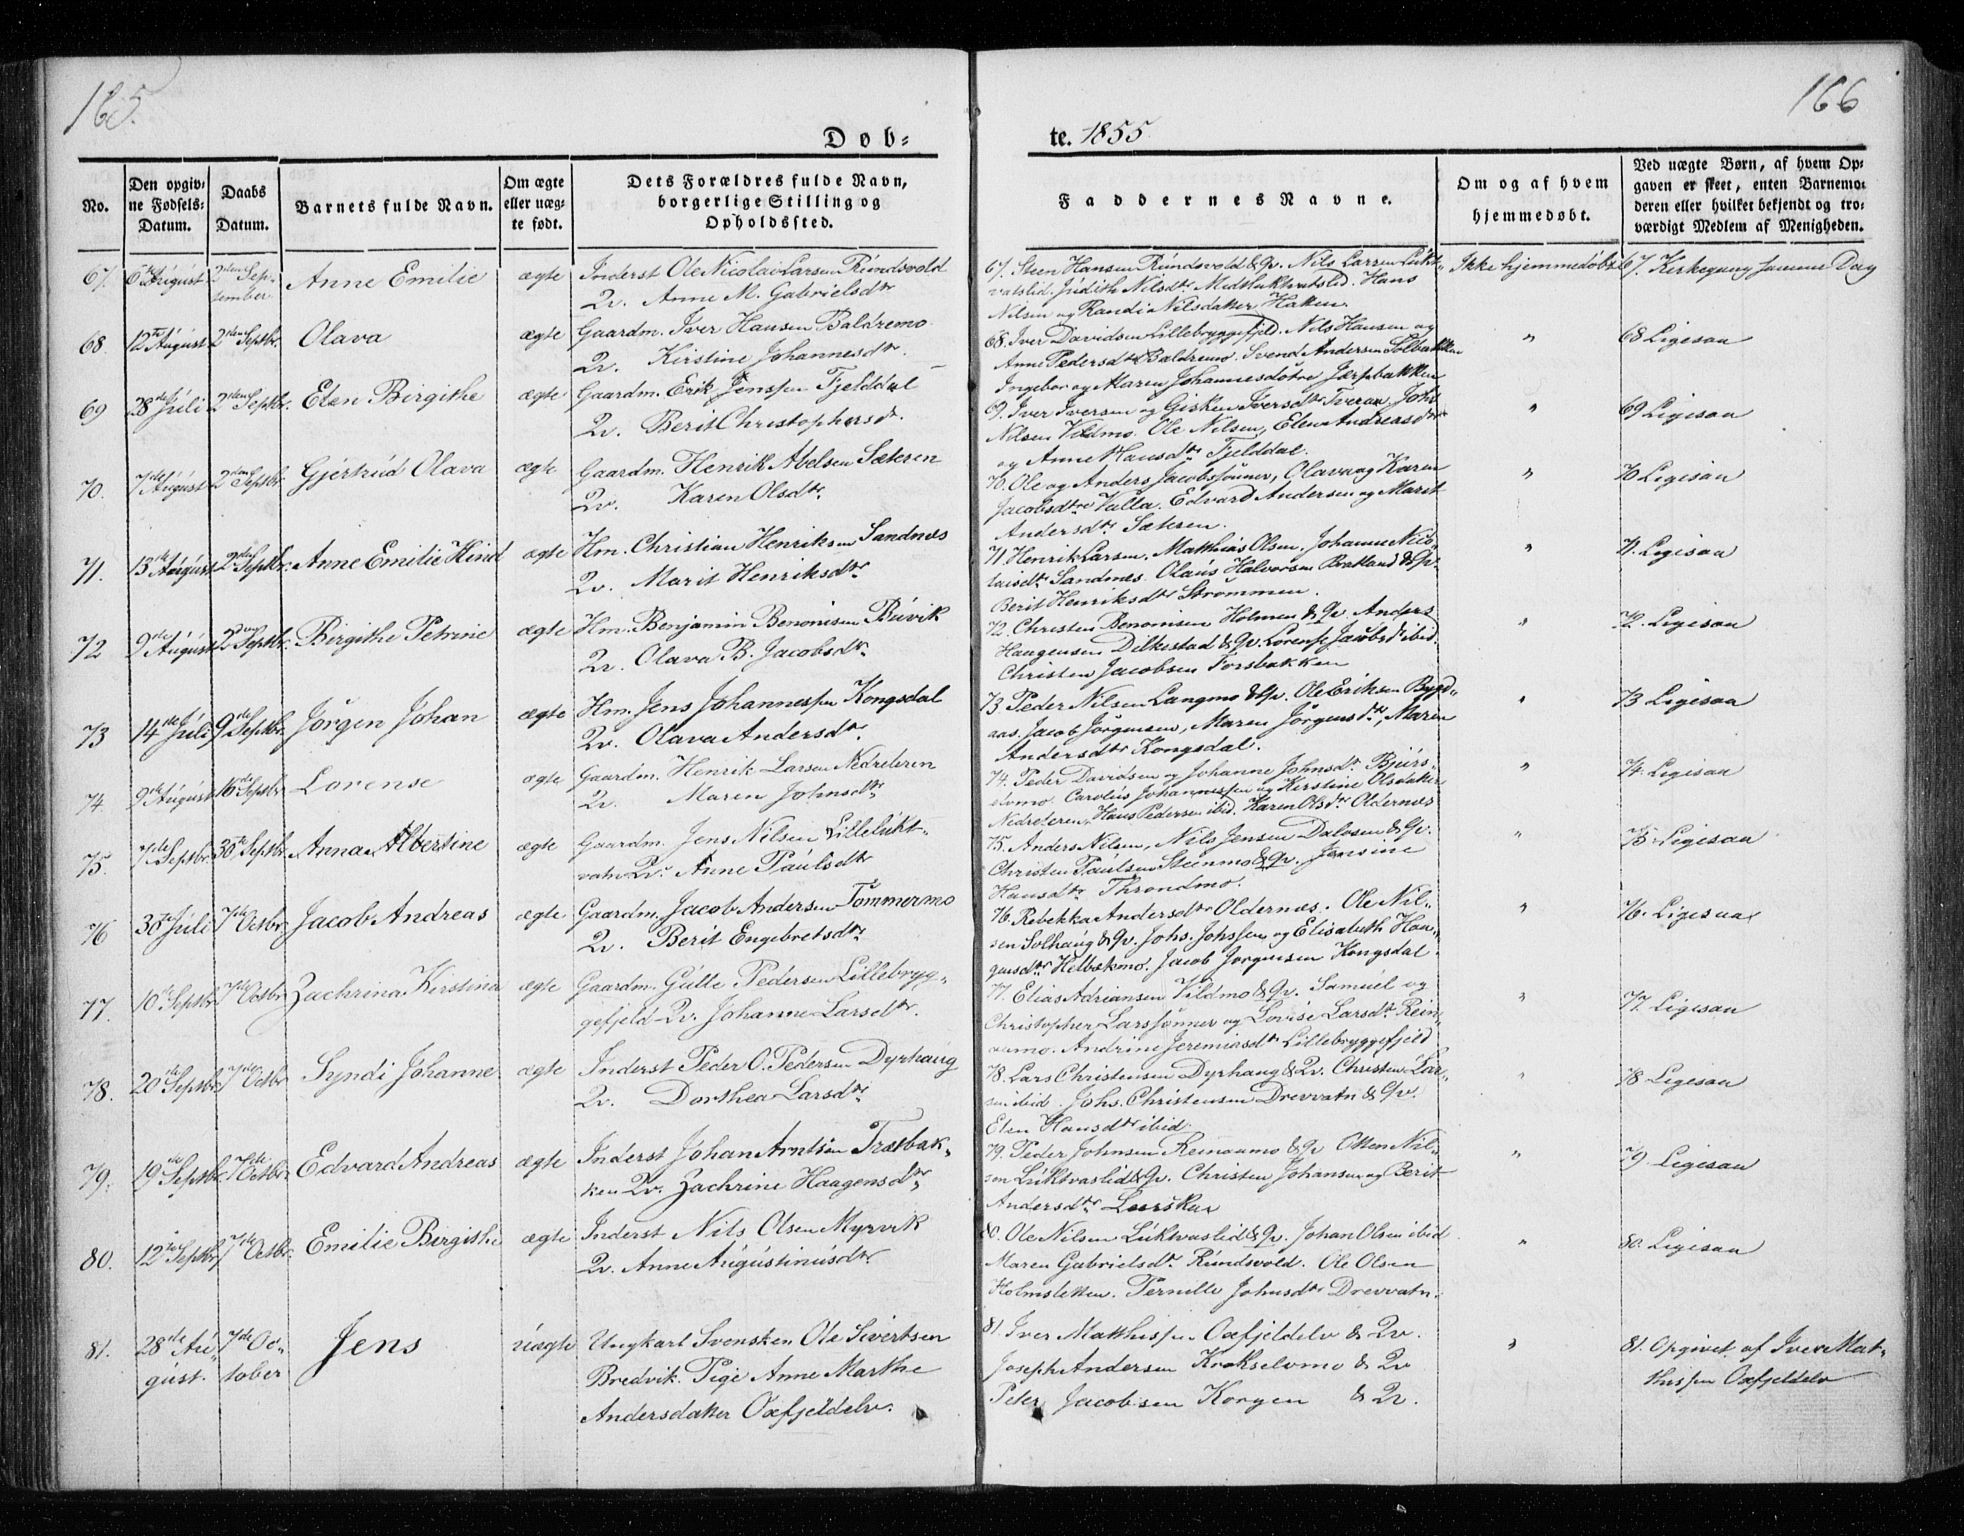 165.
166
Døb-
te. 1855
No.
Den opgiv-
ne Fødsels-
Datum.
Daabs
Datum.
Barnets fulde Navn.
Om ægte
eller uæg-
te født.
Dets Forældres fulde Navn,
borgerlige Stilling og
Opholdssted.
Faddernes Navne.
Om og af hvem
hjemmedøbt.
Ved uægte Børn, af hvem Op-
gaven er skeet, enten Barnemo-
deren eller hvilket bekjendt og tro-
værdigt Medlem af Menigheden.
67. 6te August 2den Sep-
tember
Anne Emilie
ægte
Inderst Ole Nicolai Larsen Rundsvold
Qv. Anne M. Gabrielsdtr
67. Steen Hansen Rundsvold & Qv. Nils Larsen Lukt-
vatslid. Judith Nilsdtr Midtluktvatslid. Hans
Nilsen og Randia Nilsdatter Hatten.
Ikke hjemmedøbt
67. Kirkegang samme Dag
68. 12te August 2den Septbr.
Olava
ægte
Gaardm. Iver Hansen Baldremo
Qv. Kirstine Johannesdtr.
68. Iver Davidsen Lillebryggefjeld. Nils Hansen og
Anne Pedersdtr Baldremo. Svend Andersen Solbakken
Ingebor og Maren Johannesdøtre Jerpbakken
"
68 Ligesaa
69 28de Juli 2den Septbr.
Elen Birgithe
ægte
Gaardm. Erik Jenssen Fjelddal
Qv. Berit Christophersd.
69. Iver Iversen og Gisken Iversdtr Tveraa. Johs
Nilsen Vildmo. Ole Nilsen, Elen Andreasdtr
og Anne Hansdtr Fjelddal.
"
69 Ligesaa
70. 7de August 2den Septbr.
Gjertrud Olava
ægte
Gaardm. Henrik Abelsen Sæteren
Qv. Karen Olsdtr.
70. Ole og Anders Jacobssønner, Olava og Karen
Jacobsdtre Valla. Edvard Andersen og Marit
Andersdtr Sæteren.
"
70 Ligesaa
71. 13de August 2den Septbr.
Anne Emilie Hind
ægte
Hm. Christian Henriksen Sandnes
Qv. Marit Henriksdtr
71 Henrik Larsen. Matthias Olsen. Johanne Nico-
laisdtr Sandnes. Olaus Halvorsen Bratland & Qv.
Berit Henriksdtr Strømmen.
"
71. Ligesaa
72 9de August 2den Septbr.
Birgithe Petrine
ægte
Hm. Benjamin Benonisen Buvik
Qv. Olava B. Jacobsdtr.
72. Christen Benonisen Holmen & Qv. Anders
Haagensen Dilkestad & Qv. Lorense Jacobsd ibid.
Christen Jacobsen Forsbakken
"
72. Ligesaa
73 14de Juli 9de Septbr.
Jørgen Johan
ægte
Hm. Jens Johannessen Kongsdal
Qv. Olava Andersdtr.
73 Peder Nilsen Langmo & Qv. Ole Eriksen Bygd-
aas. Jacob Jørgensen, Maren Jørgensdtr, Maren
Andersdtr Kongsdal.
"
73 Ligesaa
74 9de August 16de Septbr.
Lorense
ægte
Gaardm. Henrik Larsen Nedreteren
Qv. Maren Johnsdtr
74. Peder Davidsen og Johanne Johnsdtr Bjurs-
elvmo. Carolus Johannessen og Kirstine Olsdatter
Nedreteren, Hans Pedersen ibid. Karen Olsdtr Oldernæs
"
74. Ligesaa
75. 7de Septbr. 30te Septbr.
Anna Albertine
ægte
Gaardm. Jens Nilsen Lillelukt-
vatn Qv. Anne Paulsdtr
75. Anders Nilsen, Nils Jensen Dalosen & Qv.
Christen Paulsen Steenmo & Qv. Jensine
Hansdtr Throndmo.
"
75 Ligesaa
76 30te Juli 7de Octbr.
Jacob Andreas
ægte
Gaardm. Jacob Andersen Tømmermo
Qv. Berit Engebretsdtr
76. Rebekka Andersdtr Oldernæs. Ole Nil-
sen Solhaug & Qv. Johs. Johssen og Elisabeth Haa-
gensdtr Helbekmo. Jacob Jørgensen Kongsdal.
"
76. Ligesaa
77. 10de Septbr. 7de Octbr.
Zachrina Kirstina
ægte
Gaardm. Gulle Pedersen Lillebryg-
gefjeld Qv. Johanne Larsdtr.
77. Elias Adriansen Vildmo & Qv. Samuel og
Christopher Larssønner og Lovise Larsdtr Rein-
aamo. Andrine Jeremiasdtr Lillebryggefjeld
"
77 Ligesaa
78. 20de Septbr. 7de Octbr.
Syndi Johanne
ægte
Inderst Peder O. Pedersen Dyrhaug
Qv. Dorthea Larsdtr.
78. Lars Christensen Dyrhaug & Qv. Christen Lar-
sen ibid. Johs. Christensen Drevvatn & Qv.
Elen Hansdtr ibid
"
78 Ligesaa
79. 19de Septbr. 7de Octbr.
Edvard Andreas
ægte
Inderst Johan Arntsen Træbak-
ken Qv. Zachrine Haagensdtr
79. Peder Johnsen Reinaamo & Qv. Otten Nil-
sen Luktvaslid & Qv. Christen Johansen og Berit
Andersdtr
"
79 Ligesaa
80. 12te Septbr. 7de Octbr.
Emilie Birgithe
ægte
Inderst Nils Olsen Myrvik
Qv. Anne Augustinusdtr.
80. Ole Nilsen Luktvaslid & Qv. Johan Olsen ibid
Maren Gabrielsdtr. Rundsvold. Ole Olsen
Holmsletten. Pernille Johnsdtr Drevvatn.
"
80. Ligesaa
81. 28de Au-
gust. 7de Oc-
tober
Jens
uægte
Ungkarl Svensken Ole Sivertsen
Bredvik. Pige Anne Marthe
Andersdatter Oxfjeldelv.
81. Iver Matthissen Oxfjeldelv & Qv.
Joseph Andersen Krokselvmo & Qv
Peter Jacobsen Korgen & Qv.
"
81. Opgivet af Iver Mat-
thissen Oxfjeldelv